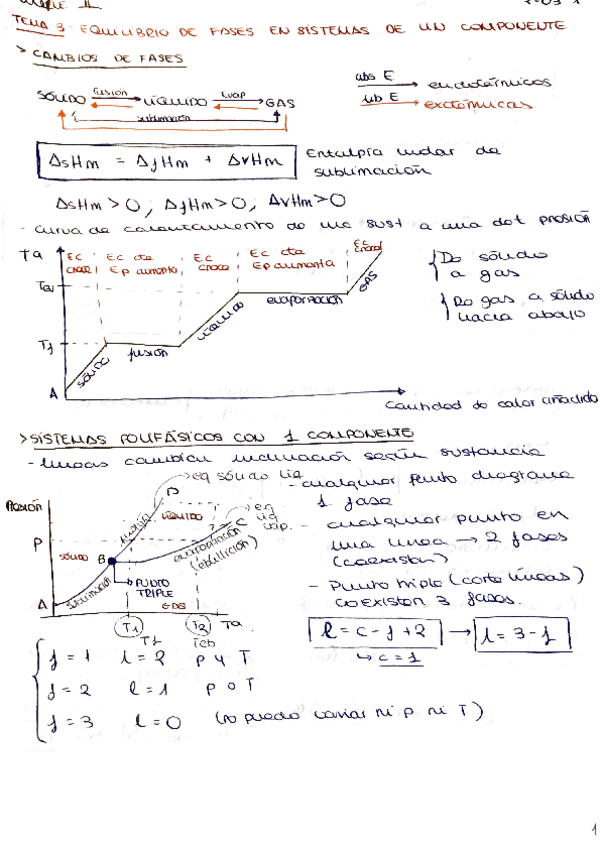 TEMA 3 - EQUILIBRIO DE FASES EN SISTEMAS DE UN COMPONENTE
> CAMBIOS DE FASES
SÓLIDO fusión LÍQUIDO vap GAS
sublimación
abs E → endotérmicos
lib E → exotérmicas
ΔsHm = ΔfHm + ΔvHm
Entalpía molar de sublimación
ΔsHm > 0 ; ΔfHm > 0 ; ΔvHm > 0
- Curva de calentamiento de una sust a una det presión
Ta
Ec crece
Ec cte Ep aumenta
Ec crece
Ec cte Ep aumenta
Ec crece
Tf
A
sólido
fusión
líquido
evaporación
GAS
De sólido a gas
De gas a sólido hacia abajo
Cantidad de calor añadido
> SISTEMAS POLIFÁSICOS CON 1 COMPONENTE
- líneas cambian inclinación según sustancia
eq sólido liq
- cualquier punto diagrama 1 fase
- cualquier punto en una línea → 2 fases (coexisten)
- Punto triple (corte líneas) coexisten 3 fases.
PRESIÓN
P
D
LÍQUIDO
fusión
C
eq liq vap.
SÓLIDO
B
evaporación (ebullición)
A
sublimación
PUNTO TRIPLE
GAS
T1
T2
Ta
Tf
Teb
l = c - f + 2 → l = 3 - f
↳ c = 1
f = 1 l = 2 p y T
f = 2 l = 1 p o T
f = 3 l = 0 (no puedo variar ni p ni T)
1